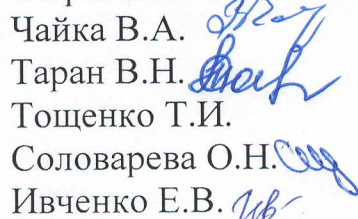 Чайка В.А.
Таран В.Н.
Тощенко Т.И.
Соловарева О.Н.
Ивченко Е.В.